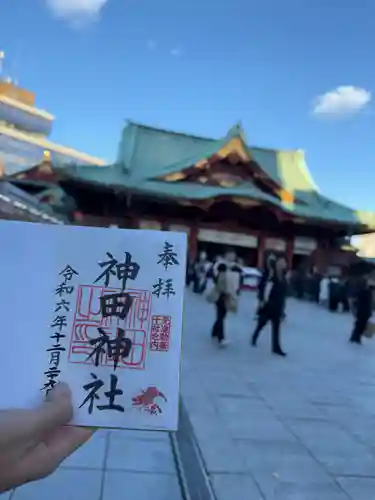 奉拝
神田神社
令和六年十二月二十九日